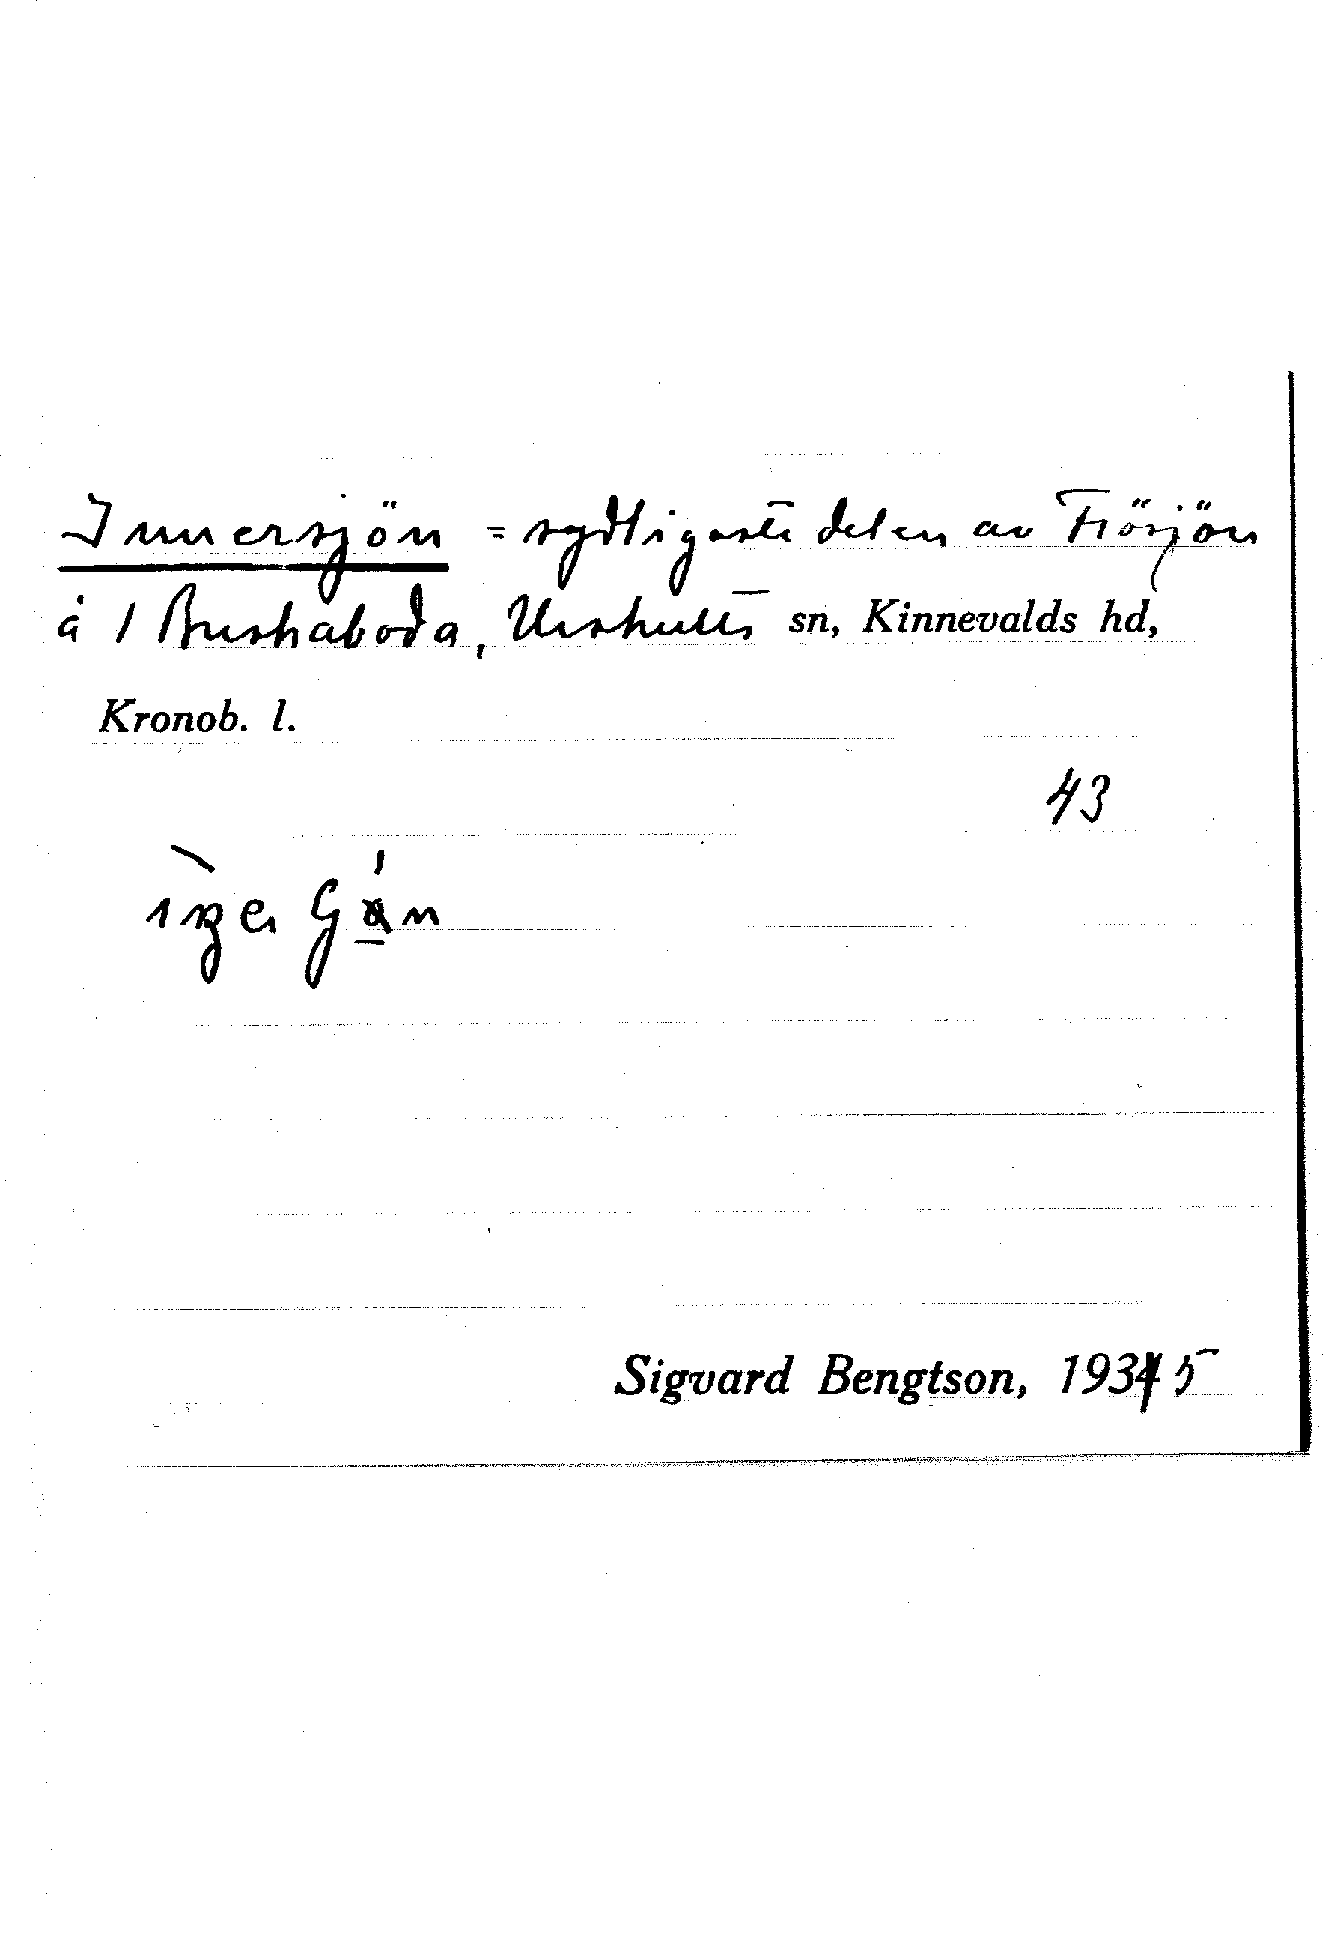 Innersjön = sydligaste delen av Frösjön
å 1 Buskaboda, Urshults sn, Kinnevalds hd,
Kronob. l.
43
Sigvard Bengtson, 1935